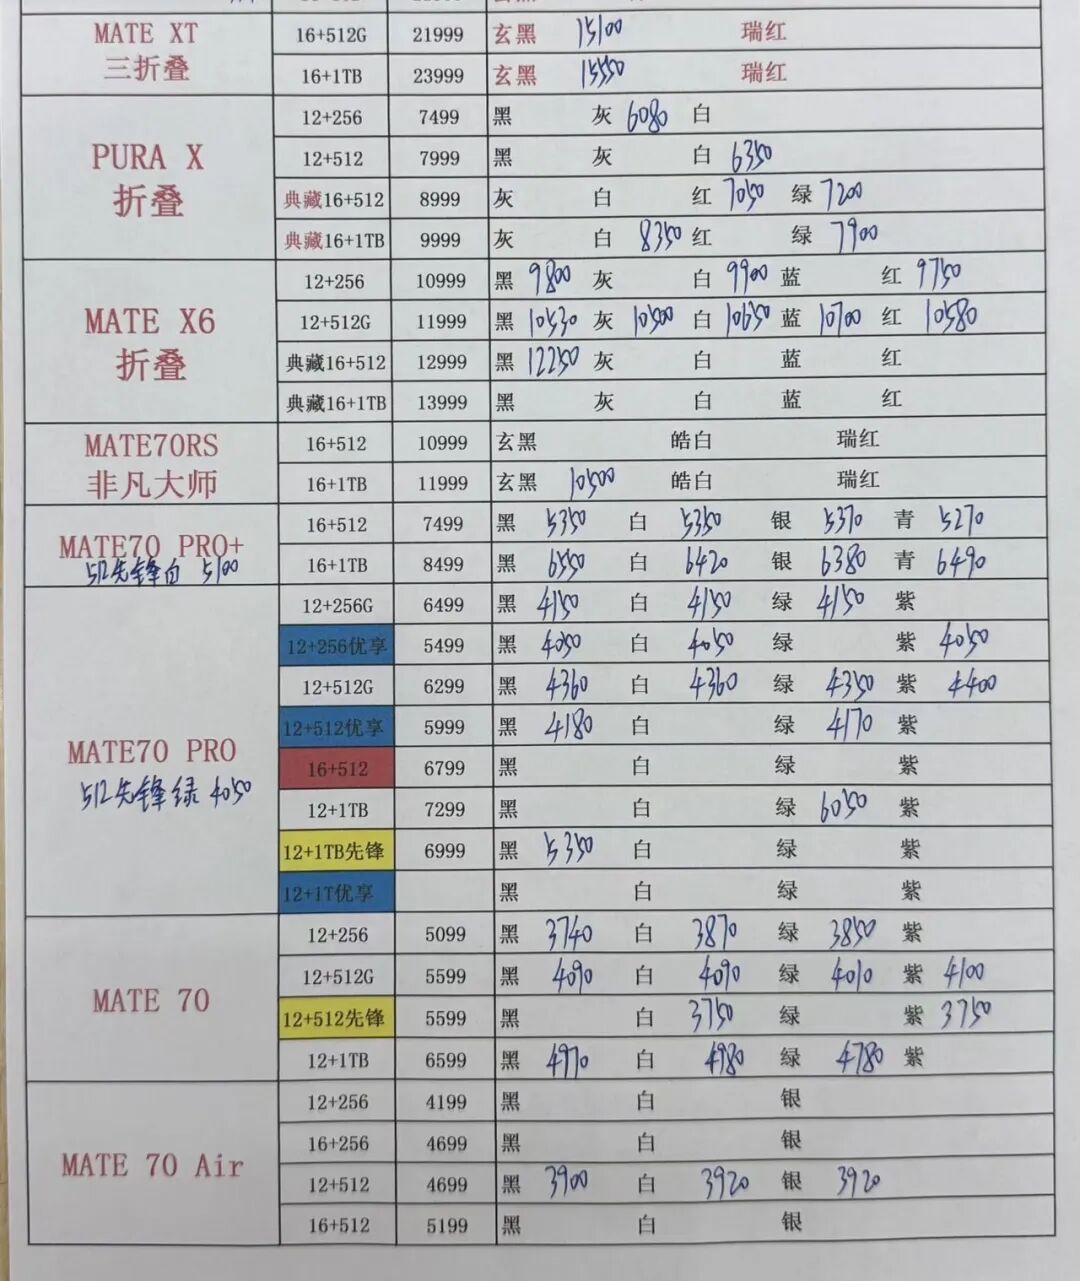 MATE XT
三折叠
16+512G 21999 玄黑 15100 瑞红
16+1TB 23999 玄黑 15550 瑞红
PURA X
折叠
12+256 7499 黑 灰 6080 白
12+512 7999 黑 灰 白 6350
典藏16+512 8999 灰 白 红 7050 绿 7200
典藏16+1TB 9999 灰 白 8350 红 绿 7900
MATE X6
折叠
12+256 10999 黑 9800 灰 白 9900 蓝 红 9750
12+512G 11999 黑 10530 灰 10500 白 10650 蓝 10700 红 10580
典藏16+512 12999 黑 12250 灰 白 蓝 红
典藏16+1TB 13999 黑 灰 白 蓝 红
MATE70RS
非凡大师
16+512 10999 玄黑 皓白 瑞红
16+1TB 11999 玄黑 10500 皓白 瑞红
MATE70 PRO+
512先锋白 5100
16+512 7499 黑 5350 白 5350 银 5370 青 5270
16+1TB 8499 黑 6550 白 6420 银 6380 青 6490
MATE70 PRO
512先锋绿 4050
12+256G 6499 黑 4150 白 4150 绿 4150 紫
12+256优享 5499 黑 4050 白 4050 绿 紫 4050
12+512G 6299 黑 4360 白 4360 绿 4350 紫 4400
12+512优享 5999 黑 4180 白 绿 4170 紫
16+512 6799 黑 白 绿 紫
12+1TB 7299 黑 白 绿 6050 紫
12+1TB先锋 6999 黑 5350 白 绿 紫
12+1T优享 黑 白 绿 紫
MATE 70
12+256 5099 黑 3740 白 3870 绿 3850 紫
12+512G 5599 黑 4090 白 4090 绿 4010 紫 4100
12+512先锋 5599 黑 白 3750 绿 紫 3750
12+1TB 6599 黑 4970 白 4980 绿 4780 紫
MATE 70 Air
12+256 4199 黑 白 银
16+256 4699 黑 白 银
12+512 4699 黑 3900 白 3920 银 3920
16+512 5199 黑 白 银